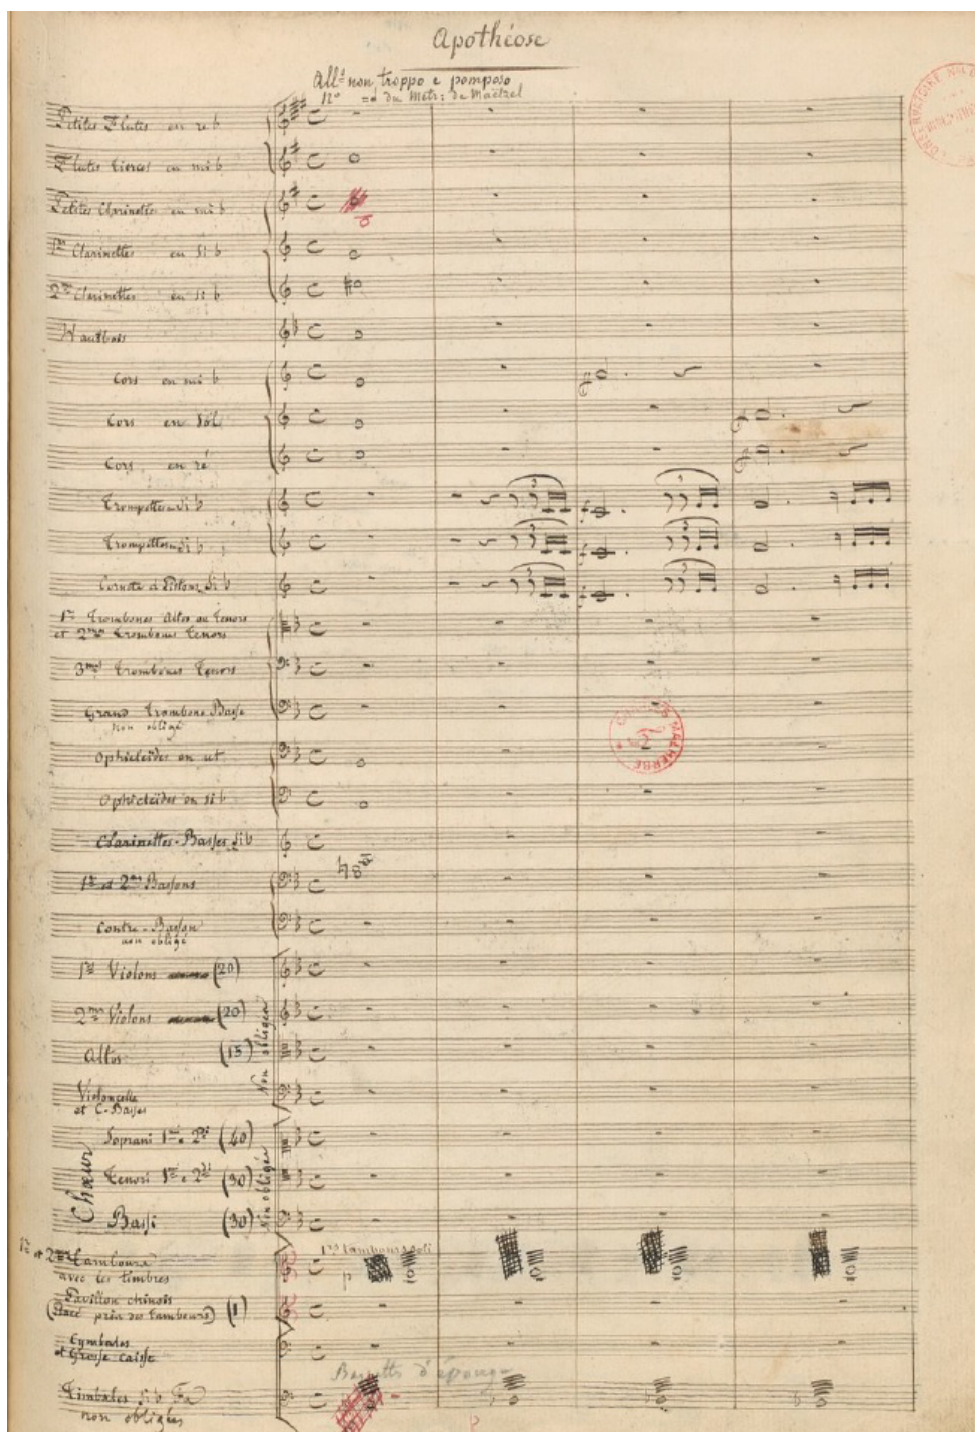 Apothéose
All.º non troppo e pomposo
du Metr: de Maëlzel
Petites Flutes en re b
Flutes tierces en mi b
Petites Clarinettes en mi b
1res Clarinettes en si b
2mes Clarinettes en si b
Hautbois
Cors en mi b
Cors en Sol
Cors en ré
Trompettes Si b
Trompettes Si b
Cornets à Pistons Si b
1rs Trombones Altos ou Tenors
et 2mes Trombones Tenors
3mes Trombones Tenors
Grand Trombone Basse
non obligé
Ophicleïdes en ut
Ophicleïdes en si b
Clarinettes-Basses si b
1rs et 2mes Bassons
Contre-Basson
non obligé
1rs Violons (20)
2mes Violons (20)
Altos (15)
Violoncelles
et C-Basses
Non obligés
Chœur
Soprani 1mi e 2di (40)
Tenori 1mi e 2di (30)
Bassi (30)
Non obligés
1rs et 2mes Tambours
avec les timbres
1rs tambours soli
p
Pavillon chinois
(Placé près des tambours) (1)
Cymbales
et Grosse caisse
Baguettes d'éponge
Timbales si b Fa
non obligées
p